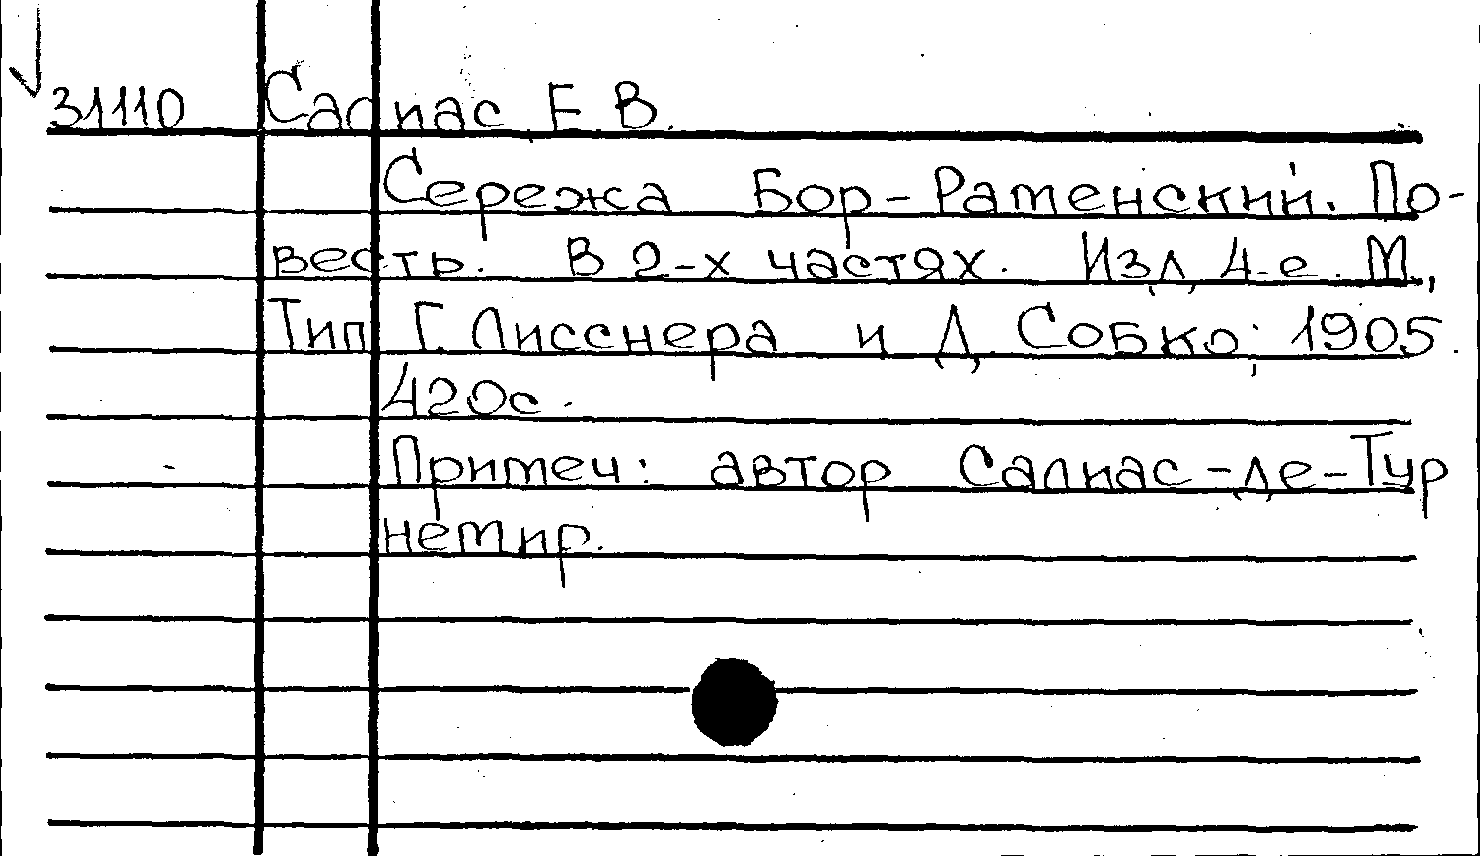 31110 Салиас Е В.
Сережа Бор-Раменский. По-
весть. В 2-х частях. Изд 4-е. М.,
Тип Г. Лисснера и Д. Собко, 1905.
420с.
Примеч: автор Салиас-де-Тур
немир.